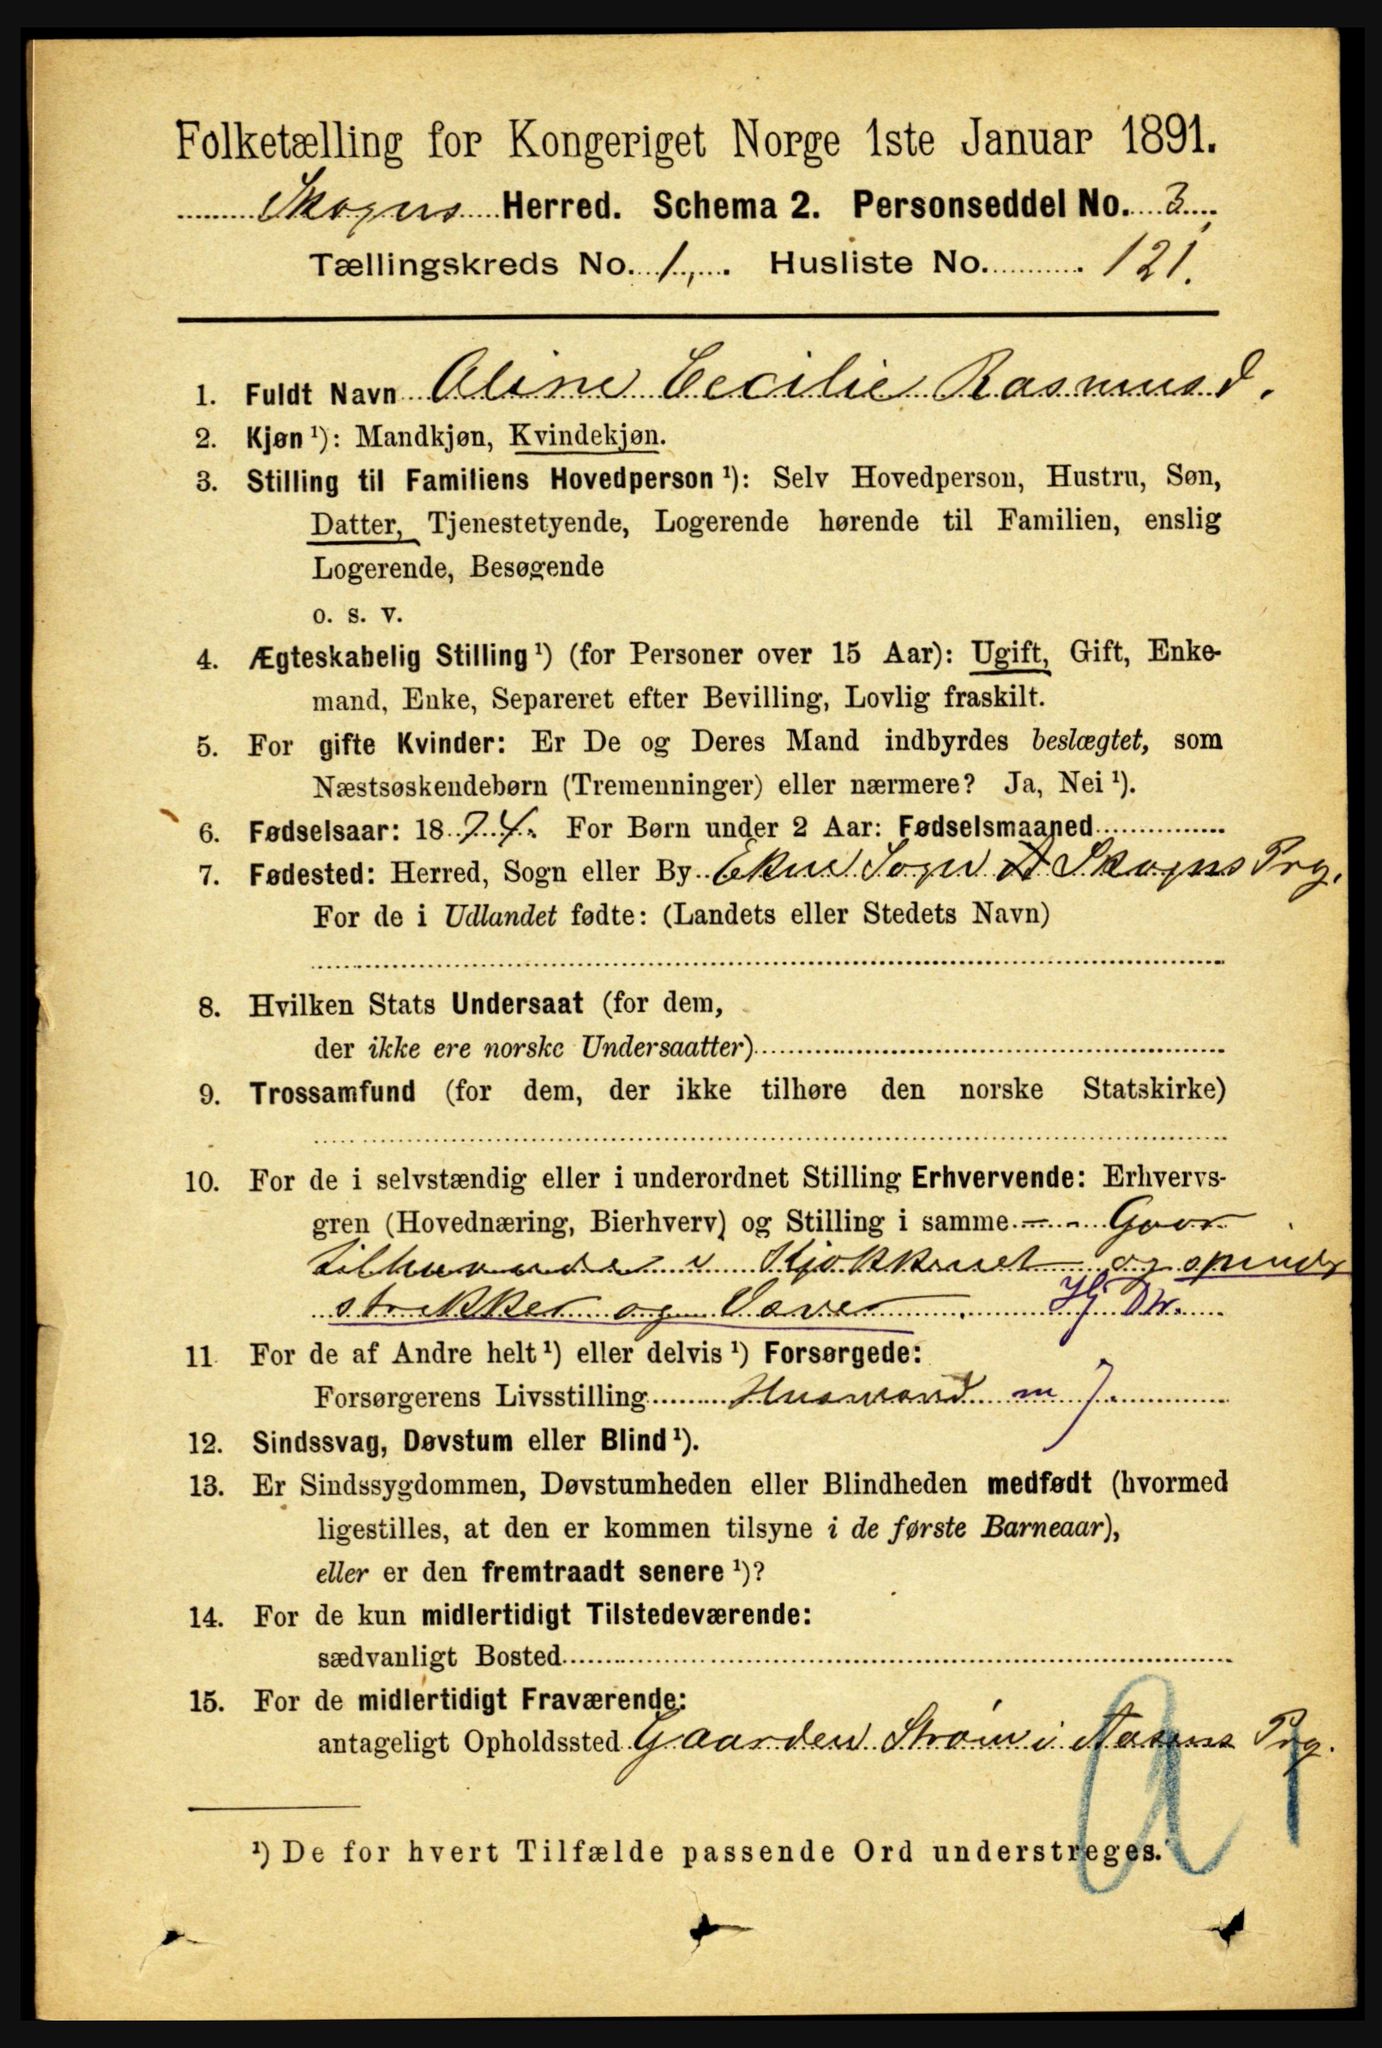 Folketælling for Kongeriget Norge 1ste Januar 1891.
Skogns Herred. Schema 2. Personseddel No. 3.
Tællingskreds No. 1, Husliste No. 121.
1. Fuldt Navn Oline Cecilie Rasmusd.
2. Kjøn ¹): Mandkjøn, Kvindekjøn.
3. Stilling til Familiens Hovedperson ¹): Selv Hovedperson, Hustru, Søn,
Datter, Tjenestetyende, Logerende hørende til Familien, enslig
Logerende, Besøgende
o. s. v.
4. Ægteskabelig Stilling ¹) (for Personer over 15 Aar): Ugift, Gift, Enke-
mand, Enke, Separeret efter Bevilling, Lovlig fraskilt.
5. For gifte Kvinder: Er De og Deres Mand indbyrdes beslægtet, som
Næstsøskendebørn (Tremenninger) eller nærmere? Ja, Nei ¹).
6. Fødselsaar: 1874. For Børn under 2 Aar: Fødselsmaaned
7. Fødested: Herred, Sogn eller By Ekne Sogn Skogns Prg.
For de i Udlandet fødte: (Landets eller Stedets Navn)
8. Hvilken Stats Undersaat (for dem,
der ikke ere norske Undersaatter)
9. Trossamfund (for dem, der ikke tilhøre den norske Statskirke)
10. For de i selvstændig eller i underordnet Stilling Erhvervende: Erhvervs-
gren (Hovednæring, Bierhverv) og Stilling i samme Gaar
tilhaande i Kjøkkenet og spinder
strikker og Væver. Hj Dtr.
11 For de af Andre helt ¹) eller delvis ¹) Forsørgede:
Forsørgerens Livsstilling Husmand m J
12. Sindssvag, Døvstum eller Blind ¹).
13. Er Sindssygdommen, Døvstumheden eller Blindheden medfødt (hvormed
ligestilles, at den er kommen tilsyne i de første Barneaar),
eller er den fremtraadt senere ¹)?
14. For de kun midlertidigt Tilstedeværende:
sædvanligt Bosted
15. For de midlertidigt Fraværende:
antageligt Opholdssted Gaarden Strøm i Aasens Prg.
¹) De for hvert Tilfælde passende Ord understreges.